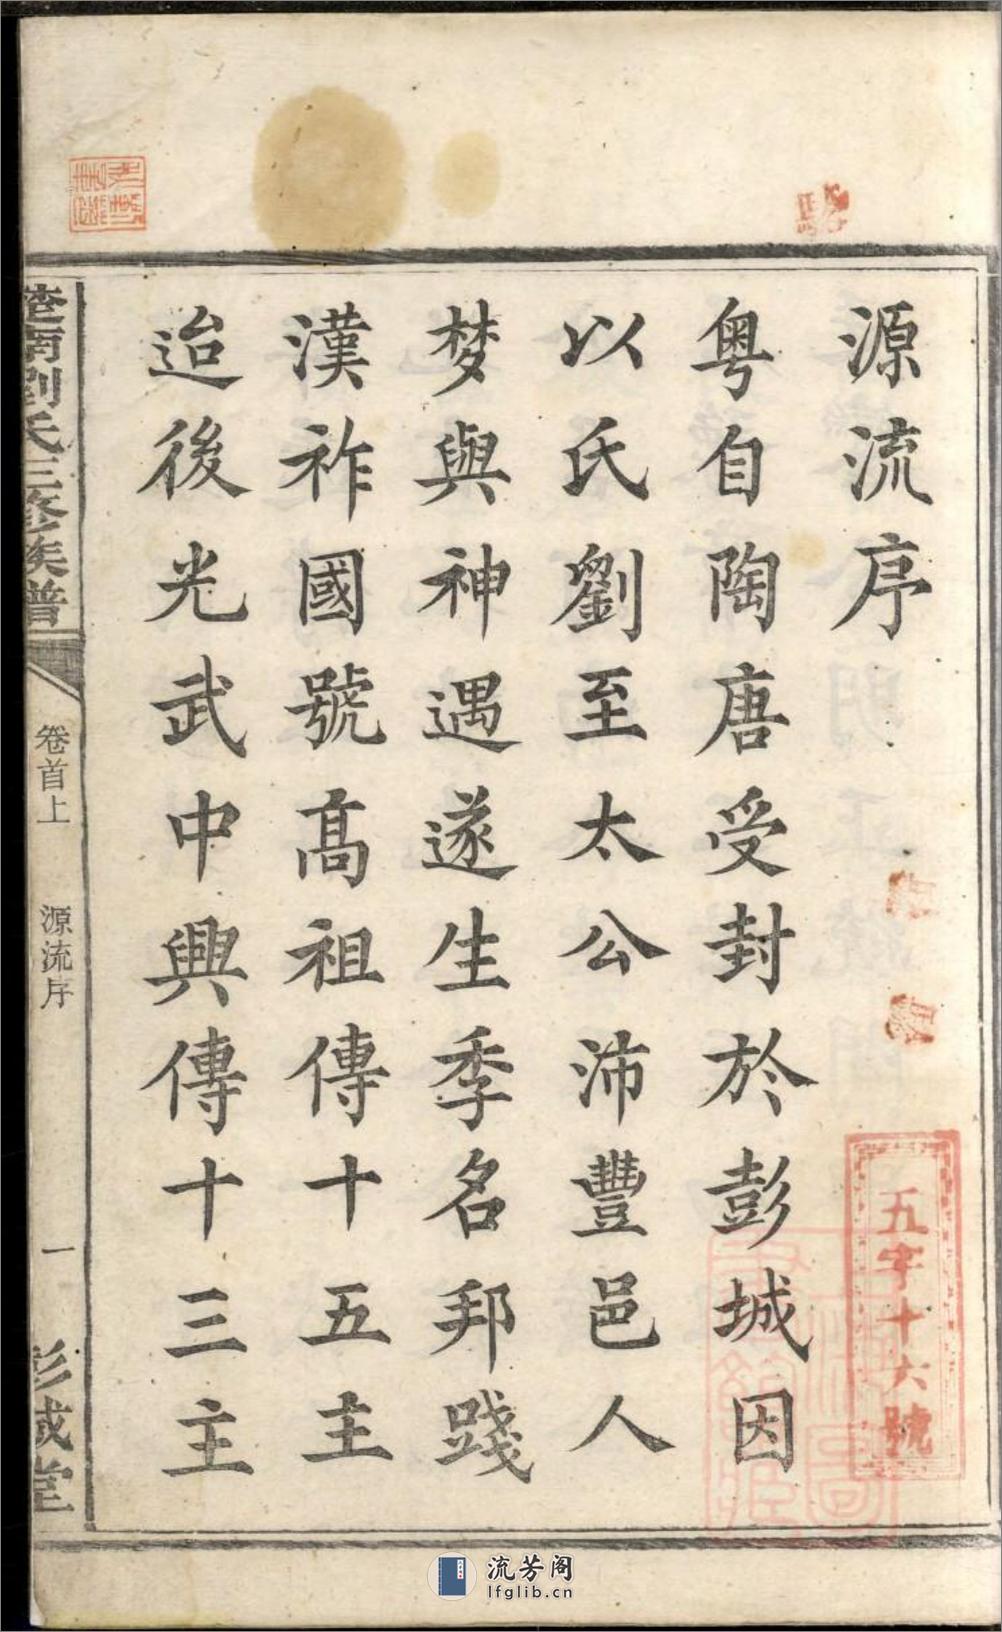 源流序
粤自陶唐受封於彭城因
以氏劉至太公沛豐邑人
梦與神遇遂生季名邦踐
漢祚國號髙祖傳十五主
迨後光武中興傳十三主
楚南劉氏三修族譜
卷首上
源流序
一
彭城堂
五字十六號
流芳阁
lfglib.cn